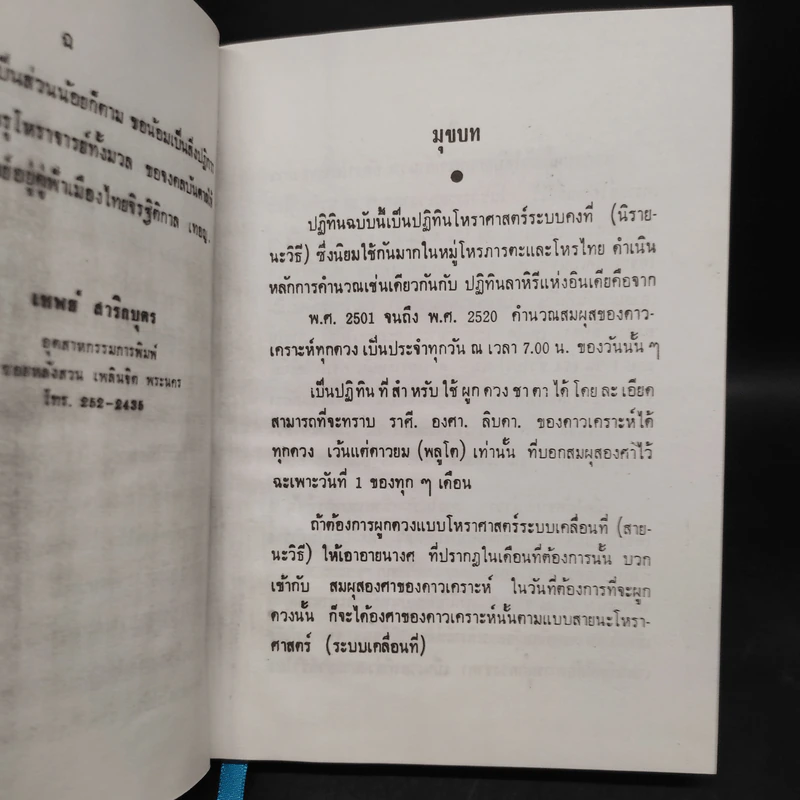 ฉ
เป็นส่วนน้อยก็ตาม ขอน้อมเป็นสิ่งปฏิการ
ครูโหราจารย์ทั้งมวล ขอจงดลบันดาลให้
อยู่คู่ฟ้าเมืองไทยจิรฐิติกาล เทอญ.
เทพย์ สาริกบุตร
อุตสาหกรรมการพิมพ์
ซอยหลังสวน เพลินจิต พระนคร
โทร. 252-2435
มุขบท
ปฏิทินฉบับนี้เป็นปฏิทินโหราศาสตร์ระบบคงที่ (นิราย-
นะวิธี) ซึ่งนิยมใช้กันมากในหมู่โหรภารตะและโหรไทย ดำเนิน
หลักการคำนวณเช่นเดียวกันกับ ปฏิทินลาหิรีแห่งอินเดียคือจาก
พ.ศ. 2501 จนถึง พ.ศ. 2520 คำนวณสมผุสของดาว-
เคราะห์ทุกดวง เป็นประจำทุกวัน ณ เวลา 7.00 น. ของวันนั้น ๆ
เป็นปฏิทินที่สำหรับใช้ผูกดวงชาตาได้โดยละเอียด
สามารถที่จะทราบ ราศี. องศา. ลิบดา. ของดาวเคราะห์ได้
ทุกดวง เว้นแต่ดาวยม (พลูโต) เท่านั้น ที่บอกสมผุสองศาไว้
ฉะเพาะวันที่ 1 ของทุก ๆ เดือน
ถ้าต้องการผูกดวงแบบโหราศาสตร์ระบบเคลื่อนที่ (สาย-
นะวิธี) ให้เอาอายนางศ ที่ปรากฏในเดือนที่ต้องการนั้น บวก
เข้ากับ สมผุสองศาของดาวเคราะห์ ในวันที่ต้องการที่จะผูก
ดวงนั้น ก็จะได้องศาของดาวเคราะห์นั้นตามแบบสายนะโหรา-
ศาสตร์ (ระบบเคลื่อนที่)